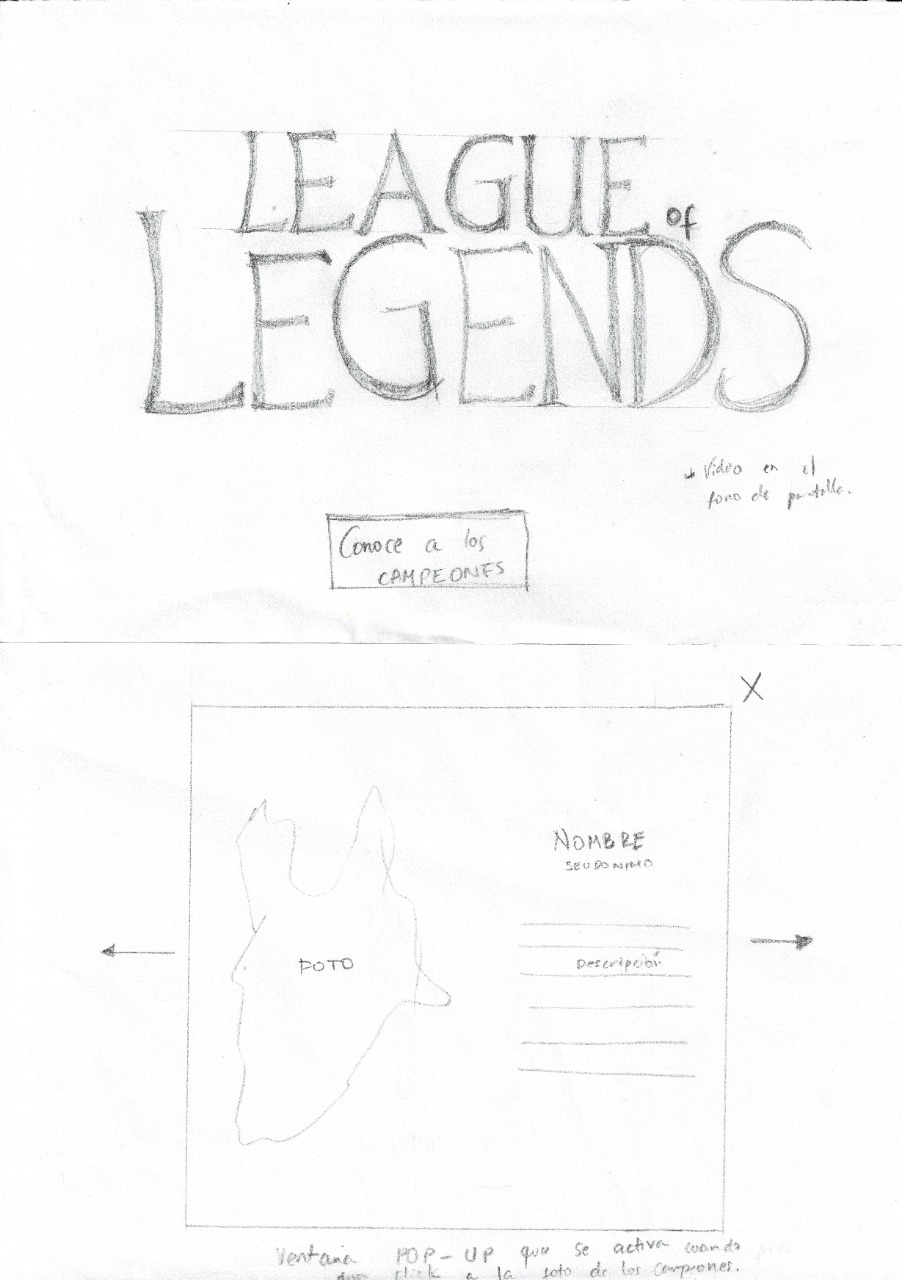 LEAGUE of
LEGENDS
Video en el
fono de pantalla.
Conoce a los
CAMPEONES
X
NOMBRE
SEUDONIMO
FOTO
Descripción
Ventana POP-UP que se activa cuando
click a la foto de los campeones.